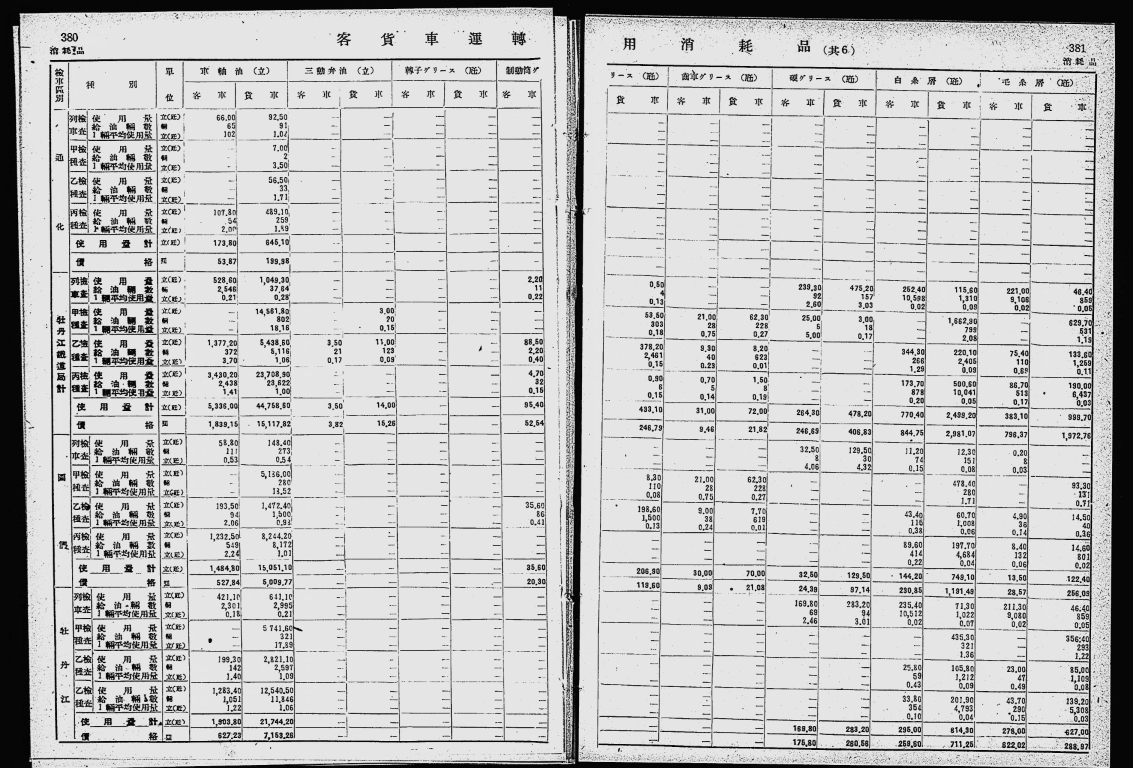 380
消耗品
客貨車運轉
檢車區別 種別 單位 車軸油(立) 三動弁油(立) 鞲子グリース(瓩) 制動筒グ
客車 貨車 客車 貨車 客車 貨車 客車
通化
列檢車查 使用量 立(瓩) 66,00 92,50
給油輛數 輛 65 91
1輛平均使用量 立(瓩) 102
甲檢種查 使用量 立(瓩) — 7,00
給油輛數 輛 — 2
1輛平均使用量 立(瓩) — 3,50
乙檢種查 使用量 立(瓩) — 56,50
給油輛數 輛 — 33
1輛平均使用量 立(瓩) — 1,71
丙檢種查 使用量 立(瓩) 107,80 489,10
給油輛數 輛 54 259
1輛平均使用量 立(瓩) 1,89
使用量計 立(瓩) 173,80 645,10
價格 53,87 199,98
牡丹江鐵道局計
列檢車查 使用量 立(瓩) 528,60 1,049,30 2,20
給油輛數 輛 2,546 11
1輛平均使用量 立(瓩) 0,21 0,28 0,22
甲檢種查 使用量 立(瓩) — 14,561,80 — 3,00
給油輛數 輛 — 802 — 20
1輛平均使用量 立(瓩) — 18,16 — 0,15
乙檢種查 使用量 立(瓩) 1,377,20 5,438,60 3,50 11,00 88,50
給油輛數 輛 372 5,116 21 123 2,20
1輛平均使用量 立(瓩) 3,70 1,06 0,17 0,40
丙檢種查 使用量 立(瓩) 3,430,20 23,708,90 4,70
給油輛數 輛 2,438 23,622 32
1輛平均使用量 立(瓩) 1,41 1,00 0,15
使用量計 立(瓩) 5,336,00 44,758,60 3,50 14,00 95,40
價格 1,839,15 15,117,82 3,82 15,26 52,54
圖們
列檢車查 使用量 立(瓩) 58,80 148,40
給油輛數 輛 111 273
1輛平均使用量 立(瓩) 0,53 0,54
甲檢種查 使用量 立(瓩) — 5,186,00
給油輛數 輛 — 280
1輛平均使用量 立(瓩) — 18,52
乙檢種查 使用量 立(瓩) 193,50 1,472,40 35,60
給油輛數 輛 94 1,500 86
1輛平均使用量 立(瓩) 2,06 0,98 0,41
丙檢種查 使用量 立(瓩) 1,232,50 8,244,20
給油輛數 輛 549 8,172
1輛平均使用量 立(瓩) 2,24 1,01
使用量計 立(瓩) 1,484,80 15,051,10 35,60
價格 527,84 5,009,77 20,30
牡丹江
列檢車查 使用量 立(瓩) 421,10 641,10
給油輛數 輛 2,301 2,995
1輛平均使用量 立(瓩) 0,18 0,21
甲檢種查 使用量 立(瓩) — 5 741,60
給油輛數 輛 321
1輛平均使用量 立(瓩) 17,89
乙檢種查 使用量 立(瓩) 199,30 2,821,10
給油輛數 輛 142 2,597
1輛平均使用量 立(瓩) 1,40 1,09
乙檢種查 使用量 立(瓩) 1,283,40 12,540,50
給油輛數 輛 1,051 11,846
1輛平均使用量 立(瓩) 1,22 1,06
使用量計 立(瓩) 1,903,80 21,744,20
價格 627,23 7,153,26
用消耗品(其6)
381
消耗品
リース(瓩) 齒車グリース(瓩) 硬グリース(瓩) 白糸屑(瓩) 毛糸屑(瓩)
貨車 客車 貨車 客車 貨車 客車 貨車 客車 貨車
0,50 — — 239,30 475,20 252,40 115,60 221,00 46,40
4 — — 92 157 10,598 1,310 9,106 859
0,13 — — 2,60 3,03 0,02 0,09 0,02 0,05
53,50 21,00 62,30 25,00 3,00 — 1,662,90 — 629,70
303 28 228 5 18 — 799 — 531
0,18 0,75 0,27 5,00 0,17 — 2,08 — 1,19
378,20 9,30 8,20 — — 344,30 220,10 75,40 133,60
2,461 40 623 — — 266 2,405 110 1,259
0,15 0,01 — — 1,29 0,09 0,11
0,90 0,70 1,50 — — 173,70 500,60 86,70 190,00
6 5 8 — — 878 10,041 513 6,437
0,15 0,14 0,19 — — 0,20 0,05 0,17 0,03
433,10 31,00 72,00 264,30 478,20 770,40 2,499,20 383,10 999,70
246,79 9,46 21,82 246,69 406,83 844,75 2,981,07 796,37 1,972,76
— — — 32,50 129,50 11,20 12,30 0,20 —
— — — 8 30 74 151 8 —
— — — 4,06 4,32 0,15 0,08 0,03 —
8,30 21,00 62,30 — — — 478,40 — 93,30
110 28 228 — — — 280 — 131
0,08 0,75 0,27 — — — 1,71 — 0,71
198,60 9,00 7,70 — — 43,40 60,70 4,90 14,50
1,500 38 619 — — 116 1,008 36 40
0,13 0,24 0,01 — — 0,38 0,06 0,14 0,36
— — — — — 89,60 197,70 8,40 14,60
— — — — — 414 4,684 132 801
— — — — — 0,22 0,04 0,06 0,02
206,90 30,00 70,00 32,50 129,50 144,20 749,10 13,50 122,40
119,60 9,09 21,08 24,39 97,14 230,85 1,191,49 28,57 256,09
— — — 169,80 283,20 235,40 71,30 211,30 46,40
— — — 69 94 10,512 1,022 9,080 859
— — — 2,46 3,01 0,02 0,07 0,02 0,05
— — — — — — 435,30 — 356,40
— — — — — — 321 — 293
— — — — — — 1,36 — 1,22
— — — — — 25,80 105,80 23,00 85,00
— — — — — 59 1,212 47 1,109
— — — — — 0,43 0,09 0,49 0,08
— — — — — 33,80 201,90 43,70 139,20
— — — — — 354 4,793 290 5,308
— — — — — 0,10 0,04 0,15 0,03
— — — 169,80 283,20 295,00 814,30 278,00 627,00
— — — 175,80 260,56 711,25 622,02 288,97